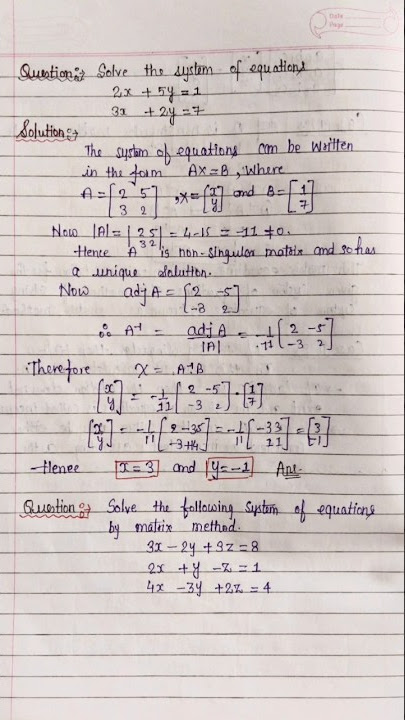 Date
Page
Question:- Solve the system of equations
2x + 5y = 1
3x + 2y = 7
Solution:-
The system of equations can be written
in the form AX=B, Where
A = [2 5; 3 2], X = [x; y] and B = [1; 7]
Now |A| = |2 5; 3 2| = 4-15 = -11 ≠ 0.
Hence A is non-singular matrix and so has
a unique solution.
Now adj A = [2 -5; -3 2]
∴ A⁻¹ = adj A / |A| = -1/11 [2 -5; -3 2]
Therefore X = A⁻¹B
[x; y] = -1/11 [2 -5; -3 2] · [1; 7]
[x; y] = -1/11 [2-35; -3+14] = -1/11 [-33; 11] = [3; -1]
Hence x=3 and y=-1 Ans.
Question:- Solve the following system of equations
by matrix method.
3x - 2y + 3z = 8
2x + y - z = 1
4x - 3y + 2z = 4